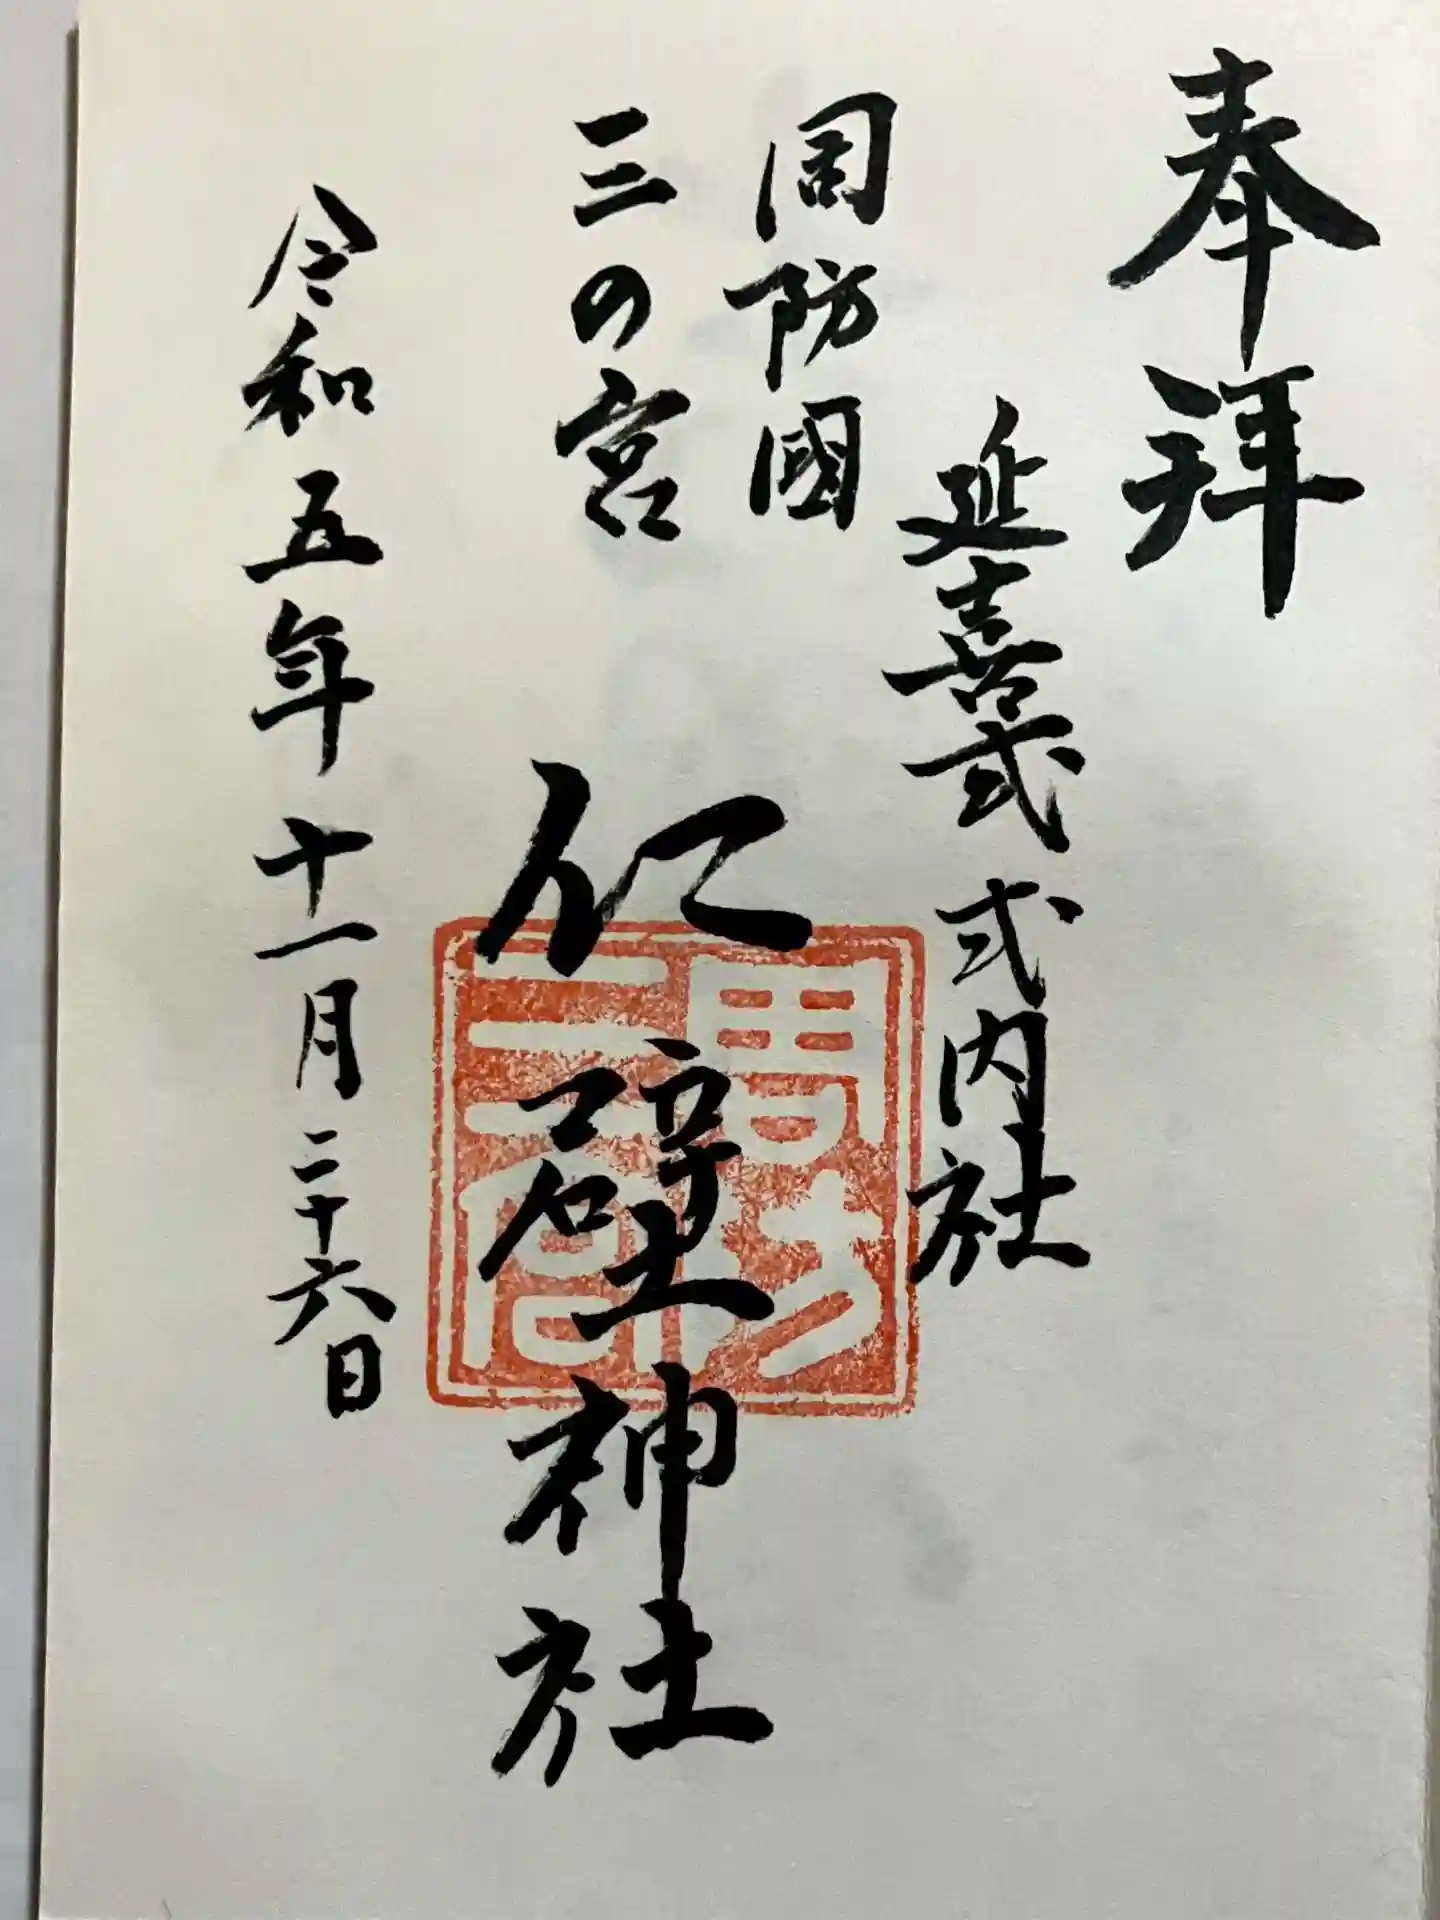 奉拝
延喜式 式内社
周防國
三の宮
仁壁神社
周防
三宮
令和五年十一月二十六日